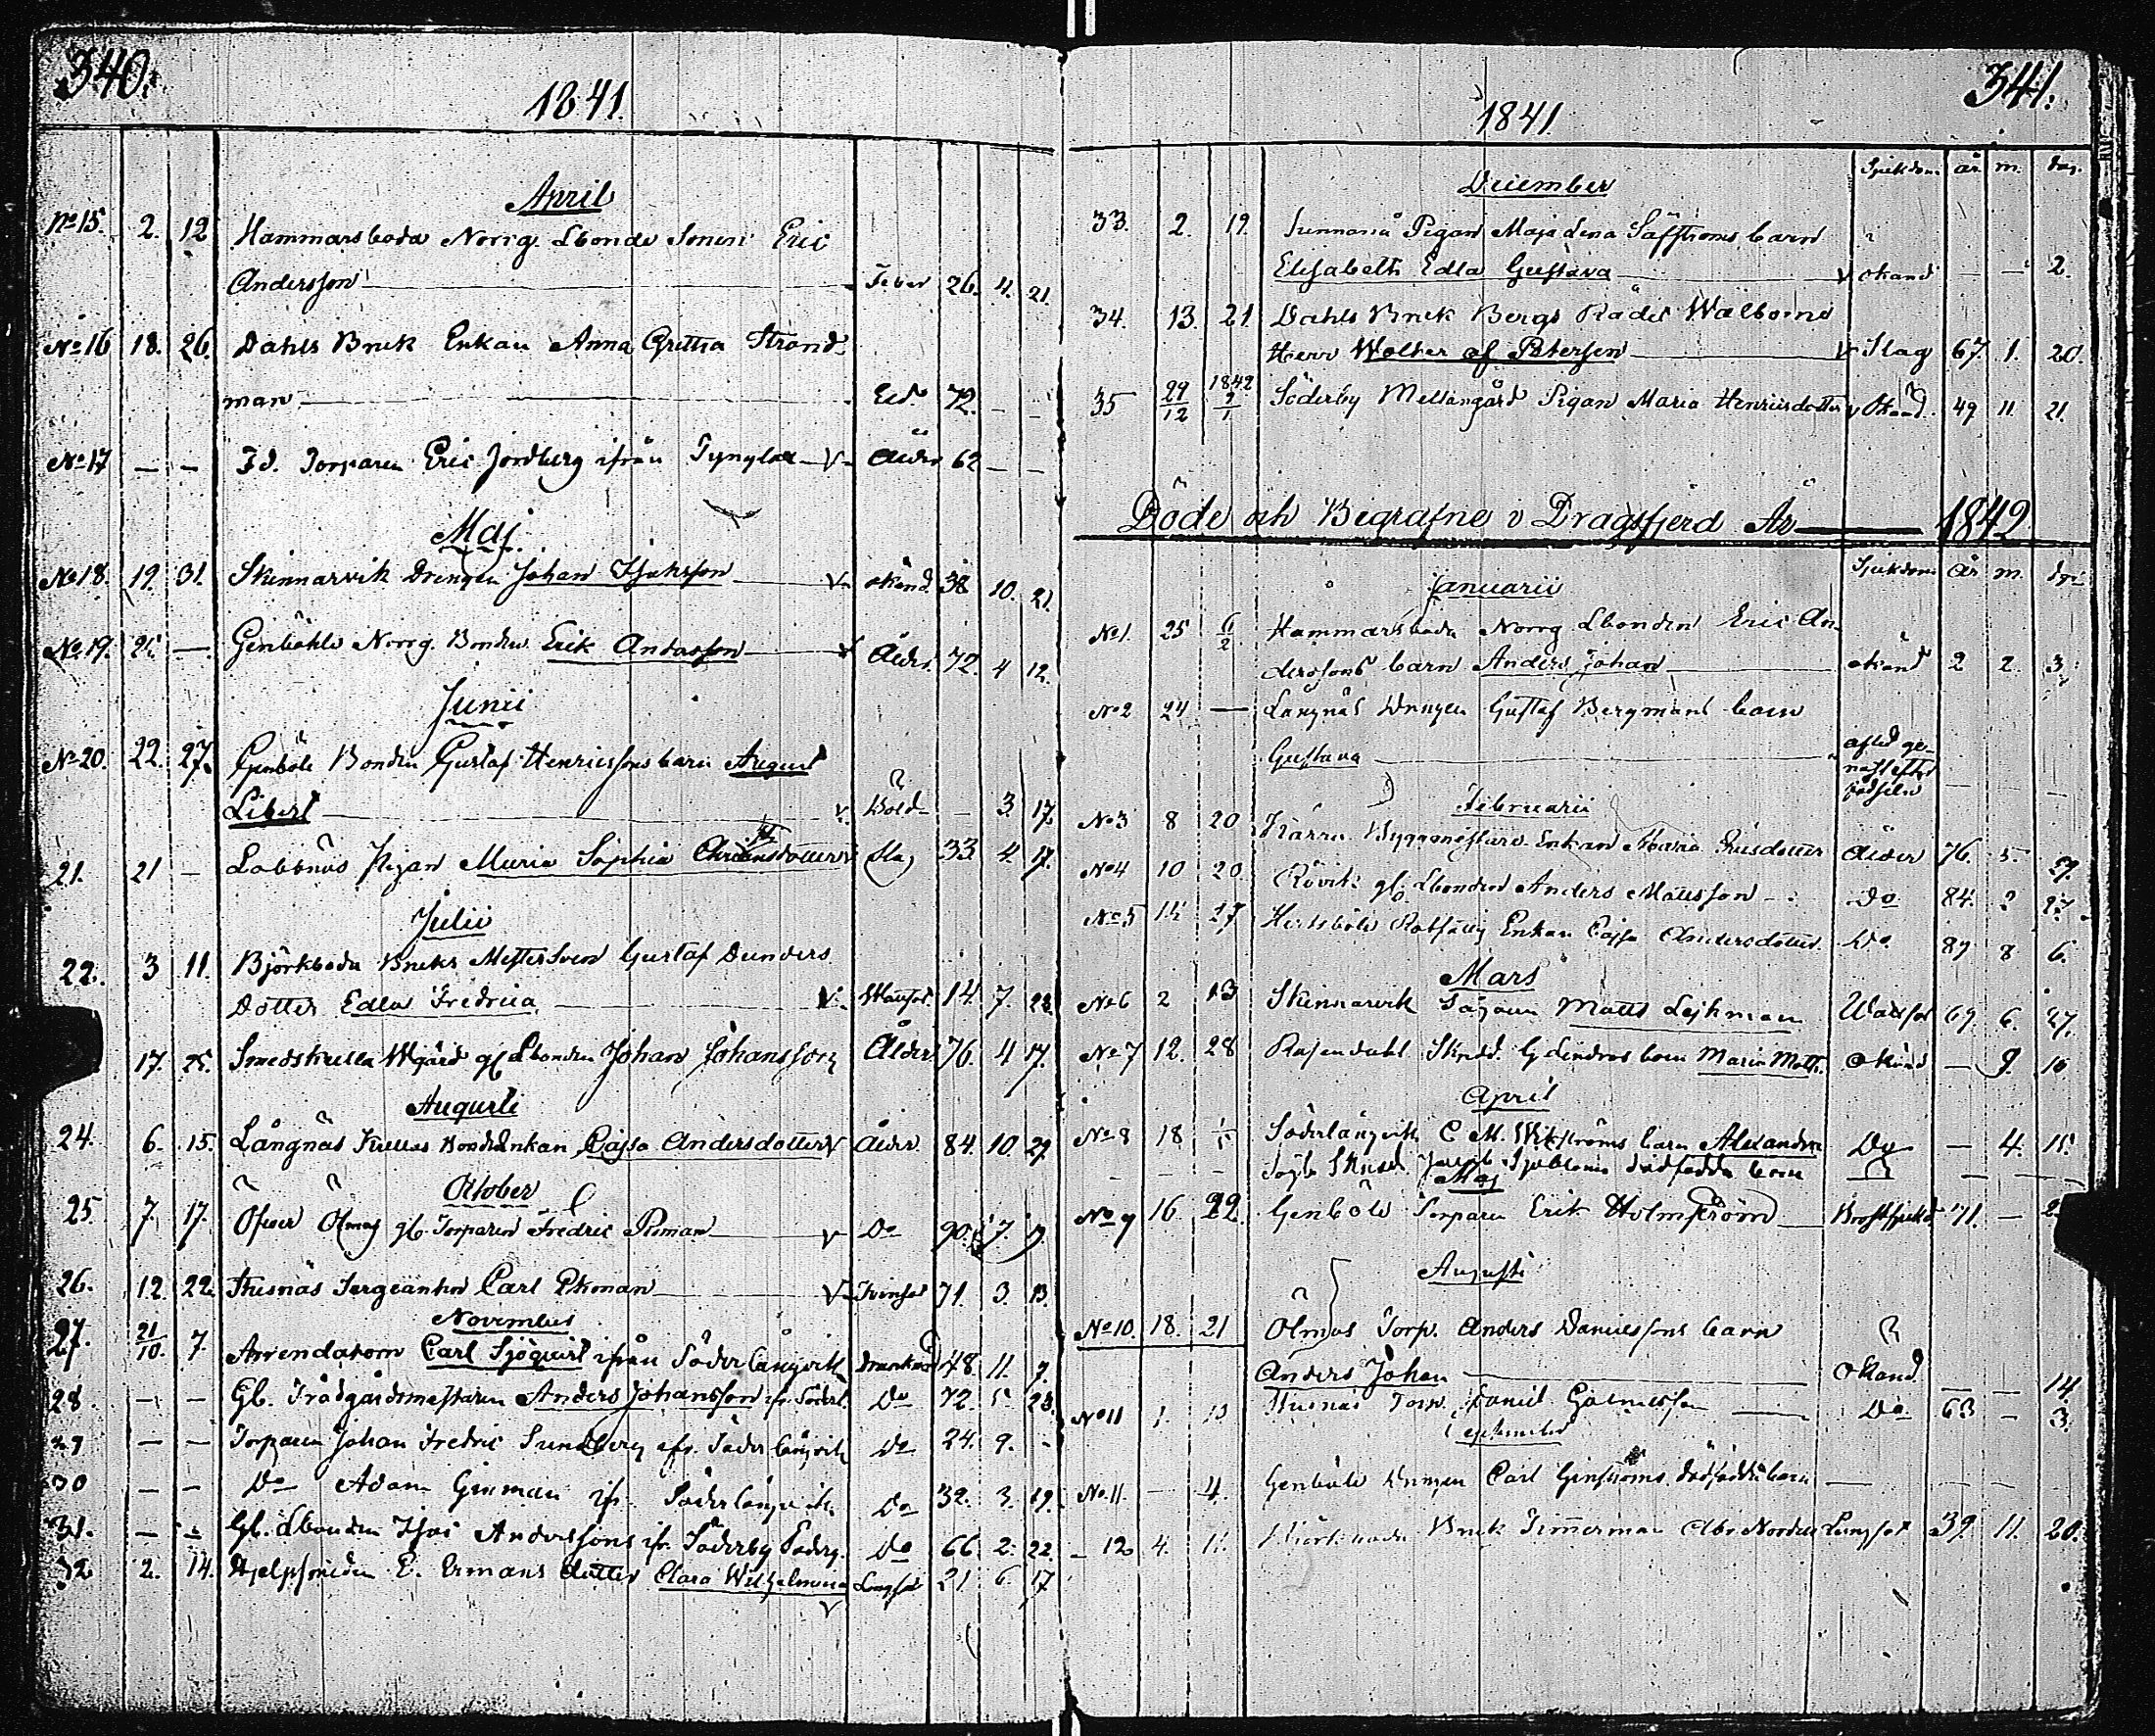 340.
1841.
April
No 15. 2. 12 Hammarsboda Norrg. Lbonde Sonen Eric
Andersson Feber 26. 4. 21.
No 16 18. 26. Dahls Bruk Enkan Anna Gretta Strand-
man 72. - -
No 17 - - Fd. Torparen Eric Jordberg ifrån v Ålder 62 - -
Maj
No 18. 19. 31. Skinnarvik Drengen Johan Isaksson v okänd. 38 10. 21.
No 19. - Genböhle Norrg. Bonden Erik Andersson v Ålder. 72. 4 12.
Junii
No 20. 22. 27. Genböle Bonden Gustaf Henricssons barn August
Libert v. - 3 17.
21. 21 - Labbnäs Pigan Maria Sophia v Slag 33. 4. 17.
Julii
22. 3 11. Björkboda Bruks Mestersven Gustaf Dunders
Dotter Edla Fredrica v. 14. 7. 28
17. 25. Smedskulla gl. Lbonden Johan Johansson Ålder 76. 4 17.
Augusti
24. 6. 15. Långnäs Kullas Enkan Cajsa Andersdotter v Ålder. 84. 10. 29.
October
25. 7. 17. Öfver Ölmos gl. Torparen Fredric v Do 90. 7. 9.
26. 12. 22. Husnäs Sergeanten Carl Ekman v 71. 3. 13.
November
27. 21/10. 7. Arrendatorn Carl Sjöqvist ifrån Söderlångvik Drunknad 48. 11. 7.
28 - - Gl. Trädgårdsmestaren Anders Johansson ifr. Söderl. Do 72. 5. 28.
29 - - Torparen Johan Fredric Sundberg ifr. Söderlångvik Do 24. 9. -
30 - - Do Adam Genman ifr. Söderlångvik Do 32. 3. 19.
31. - - Gl. Lbonden Isac Anderssons ifr. Söderby Do 66 2. 22.
32 2. 14. Hjelpsmeden E. Ermans dotter Clara Wilhelmina Lungsot 21 6. 17
v
341.
1841
December Sjukdom. år m. dag.
33. 2. 19. Sunnanå Pigan Maja Lena Säfströms barn
Elisabeth Edla Gustava v okänd - - 2.
34. 13. 21. Dahls Bruk Bergs Rådet Wälborne
Herr Wolter af Petersen v Slag 67. 1. 20.
35 29/12 1842 Söderby Mellangård Pigan Maria Henricsdotter v Okänd. 49 11. 21.
Döde och Begrafne i Dragsfjerd År 1842
Januarii Sjukdom år m.
No 1. 25 6/2 Hammarsboda Norrg Lbonden Eric An-
derssons barn Anders Johan okänd 2 2. 3.
No 2 24 - Långnäs Drengen Gustaf Bergmans barn
Gustava afled ge-
nast efter
födseln
Februarii
No 3 8 20 Kärra Byggmestare Enkan Maria Ålder 76. 5. 29.
No 4 10 20 Rövik gl. Lbonden Anders Mattsson Do 84. 2 27.
No 5 27 Hertsböle Enkan Cajsa Andersdotter Do. 89 8 6.
Mars
No 6 2 13 Skinnarvik Matts Lejhman 69. 6. 27.
No 7 12. 28 Rosendahl Skrädd. G. Lindros barn Maria Math. Okänd - 9. 10
April
No 8 18 Söderlångvik C. M. Wikströms barn Alexandra Do - 4. 15.
- - Jacob Sjöbloms dödfödda barn - - -
Maj
No 9 16 22. Genböle Torparen Erik Holmström Bröstsjukd. 71. -
Augusti
No 10. 18. 21 Ölmos Torp. Anders Danielssons barn
Anders Johan Okänd. - - 14
No 11 1. 13 Husnäs Torp. Daniel Do 63 - 3.
September
No. 11. - 4. Genböle Drengen Carl Genströms dödfödda barn - - -
12 4. 11. Björkboda Bruk Timmerman Lungsot 39. 11. 20.